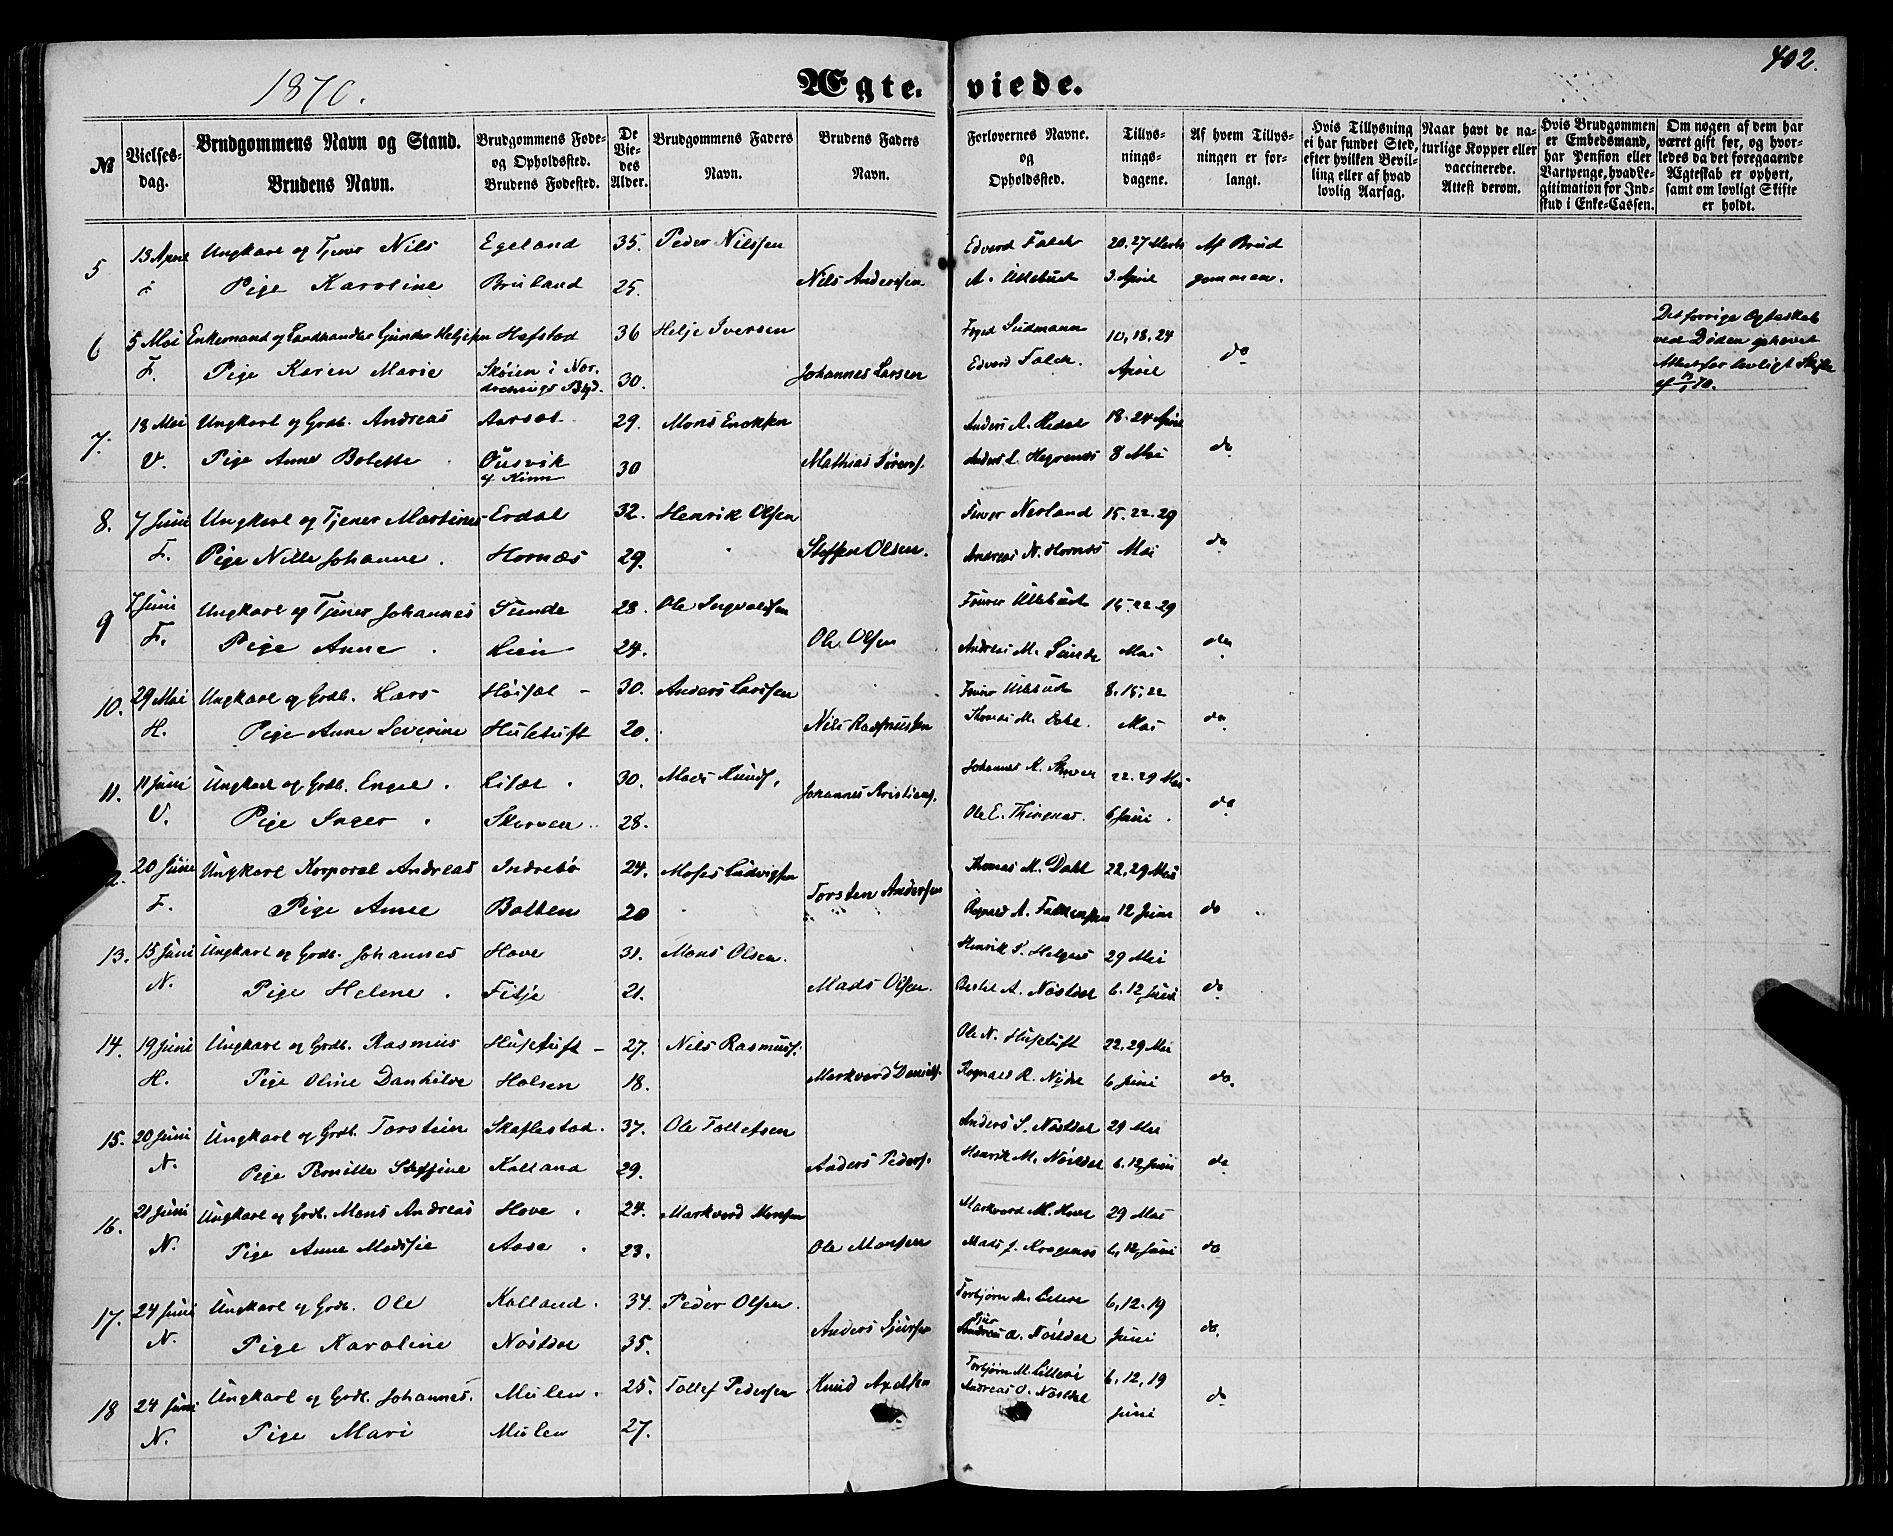 1870.
Ægte-viede.
402.
№
Vielses-dag.
Brudgommens Navn og Stand.
Brudens Navn.
Brudgommens Føde- og Opholdssted.
Brudens Fødested.
De Viedes Alder.
Brudgommens Faders Navn.
Brudens Faders Navn.
Forlovernes Navne. og Opholdssted.
Tillysningsdagene.
Af hvem Tillysningen er forlangt.
Hvis Tillysning ei har fundet Sted, efter hvilken Bevilling eller af hvad lovlig Aarsag.
Naar havt de naturlige Kopper eller vaccinerede. Attest derom.
Hvis Brudgommen er Embedsmand, har Pension eller Vartpenge, hvad Legitimation for Indskud i Enke-Cassen.
Om nogen af dem har været gift før, og hvorledes da det foregaaende Ægteskab er ophørt, samt om lovligt Skifte er holdt.
5 13 April Ungkarl og Tjener Nils Egeland 35. Peder Nilssen Edvard Falch 20, 27 Marts Af Brud
Pige Karoline Bruland 25. Nils Anderssen A. Ullebust 3 April gommen.
6 5 Mai Enkemand og Landhandler Gunder Heljesen Hafstad 36 Helje Iversen Foged Landmann 10, 18, 24 do Det forrige Egteskab
ved Døden ophævet
F. Pige Karen Marie Skøien i Nor- 30. Johannes Larsen Edvard Falch. April Attest for lovligt Skifte
7. 18 Mai Ungkarl og Grdb. Andreas Aarset 29. Mons Enoksen Anders A. Hedal 18. 24 April do
V. Pige Anne Bolette Ousvik af Kinn 30 Mathias Sørens. Anders L. Hegrenæs 8 Mai
8. 7 Juni Ungkarl og Tjener Martinus Erdal 32. Henrik Olsen Nerland 15. 22. 29 do
F. Pige Nille Johanne. Hornæs 29. Steffen Olsen. Andreas N. Hornæs Mai
9 7 Juni Ungkarl og Tjener Johannes Sunde 28. Ole Ingvaldsen Ullebust 15. 22. 29 do
F. Pige Anne Lien 24. Ole Olsen Andreas M. Sunde Mai
10. 29 Mai Ungkarl og Grdb. Lars 30. Anders Larssen Ullebust 8, 15, 22 do
H. Pige Anne Severine Husetuft 20. Nils Rasmussen Thomas M. Dahl. Mai
11. 11 Juni Ungkarl og Grdb. Engel. 30. Mads Knuds. Johannes Kristians. Johannes K. 22. 29 Mai do
V. Pige Inger Skorven 28. Ole E. Thingnæs. 6 Juni.
20 Juni Ungkarl Korporal Andreas Indrebø 24. Moses Ludvigsen Thomas M. Dahl 22, 29 Mai
F. Pige Anne Bolten 20 Torsten Andersen Ragnald A. 12 Juni do
13. 15 Juni Ungkarl og Grdb. Johannes Hove 31. Mons Olsen. Henrik P. Helgeås 29 Mai
N. Pige Helene. Fitje 21. Mads Olsen. Bertel A. Nøstdal 6. 12 Juni do
14. 19 Juni Ungkarl og Grdb. Rasmus Husetuft 27. Nils Rasmuss. Ole N. Husetuft 22, 29 Mai
H. Pige Oline Danhilde Holsen 18. Markvard Daniels. Ragnald R. 6 Juni do.
15. 20 Juni Ungkarl og Grdb. Torstein Skaflestad. 37. Ole Tollefsen Anders S. Nøstdal 29 Mai
N. Pige Pernille Steffine Kalland 29. Anders Peders. Henrik M. Nøstdal 6. 12, Juni do
16. 21 Juni Ungkarl og Grdb. Mons Andreas Hove. 24. Markvard Monsen Markvard M. Hove 29 Mai
N. Pige Anne Madssie Aase. 23. Ole Monsen Mads J. Kragenæs 6, 12, Juni do
17. 24 Juni Ungkarl og Grdb. Ole Kalland. 34. Peder Olsen. Torbjørn M. 6, 12. 19
N. Pige Karoline Nøstdal 35. Anders Sjursen Sjur A. Nøstdal Juni do.
18 24 Juni Ungkarl og Grdb. Johannes. Mulen. 25. Tollef Pedersen Knud Axelsen Torbjørn M. 6, 12, 19 do
N. Pige Mari Mulen 27. Andreas O. Nøstdal Juni